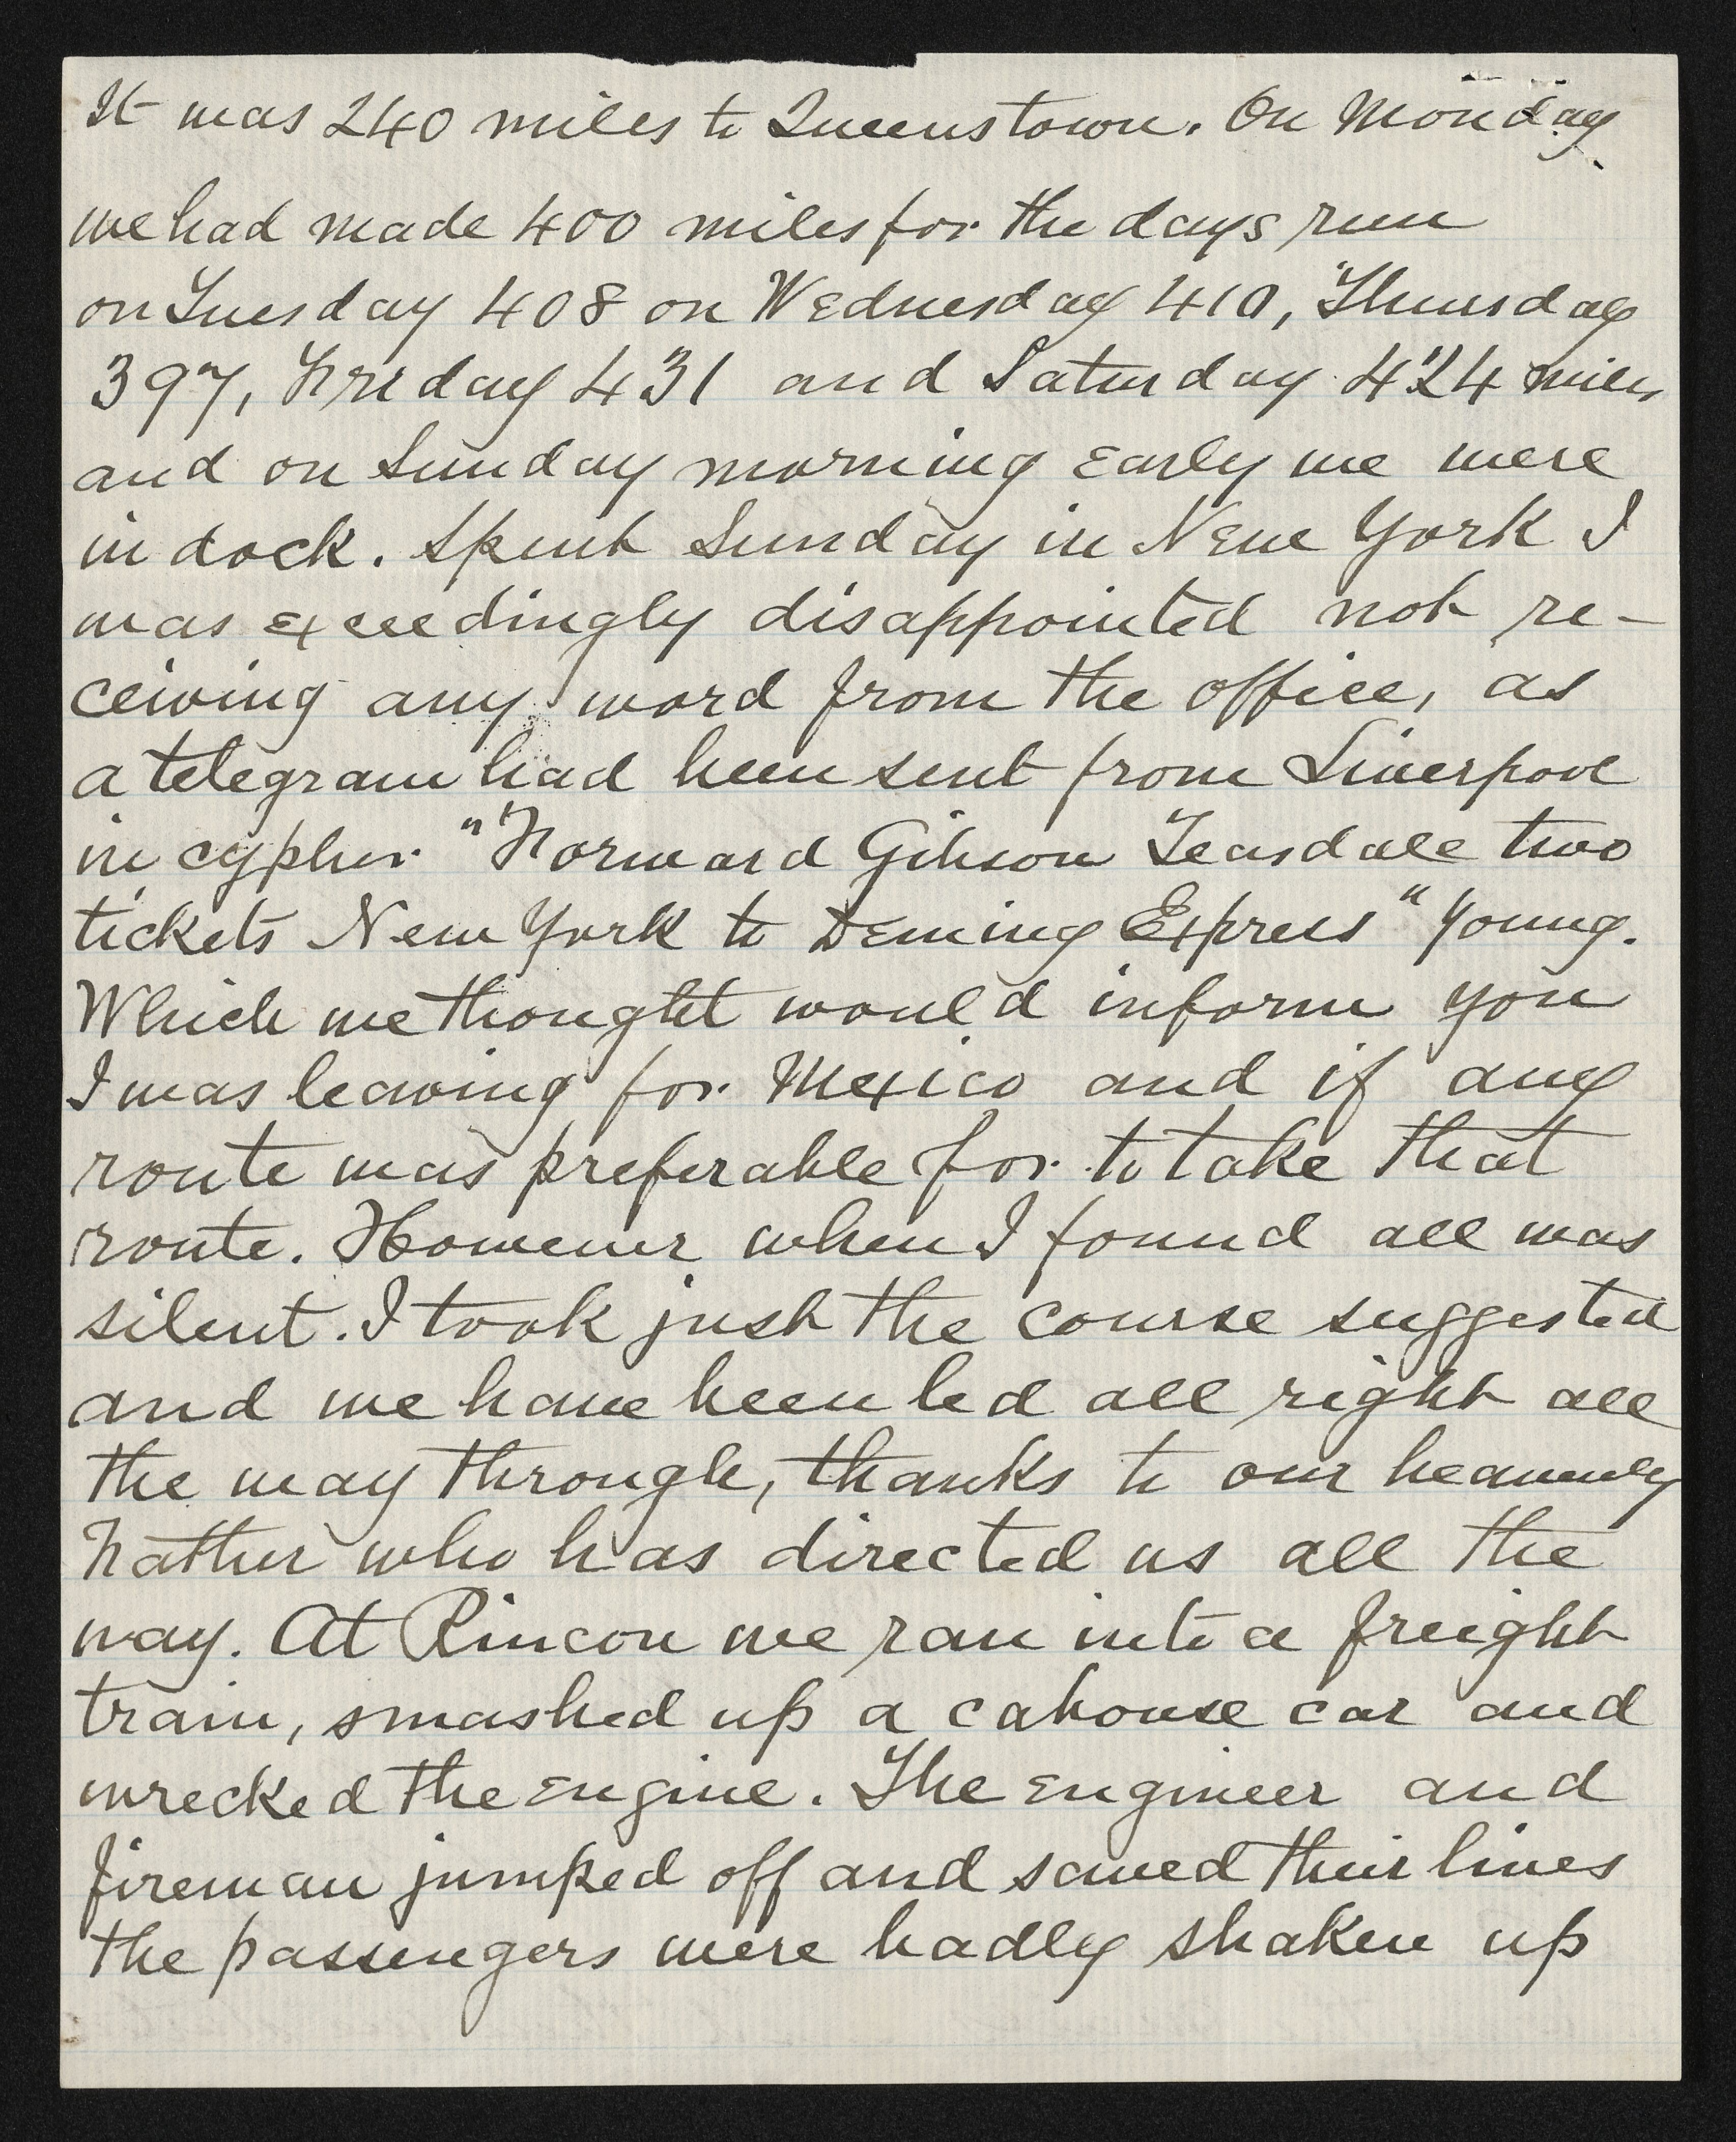 It was 240 miles to Queenstown. On Monday
we had made 400 miles for the days run
on Tuesday 408 on Wednesday 410, Thursday
397, Friday 431 and Saturday 424 miles
and on Sunday morning early we were
in dock. Spent Sunday in New York I
was exceedingly disappointed not re-
ceiving any word from the office, as
a telegram had been sent from Liverpool
in cypher "Forward Gibson Teasdale two
tickets New York to Deming Express" Young.
Which we thought would inform you
I was leaving for Mexico and if any
route was preferable for to take that
route. However when I found all was
silent. I took just the course suggested
and we have been led all right all
the way through, thanks to our heavenly
Father who has directed us all the
way. At Rincon we ran into a freight
train, smashed up a cabouse car and
wrecked the engine. The engineer and
fireman jumped off and saved their lives
the passengers were badly shaken up